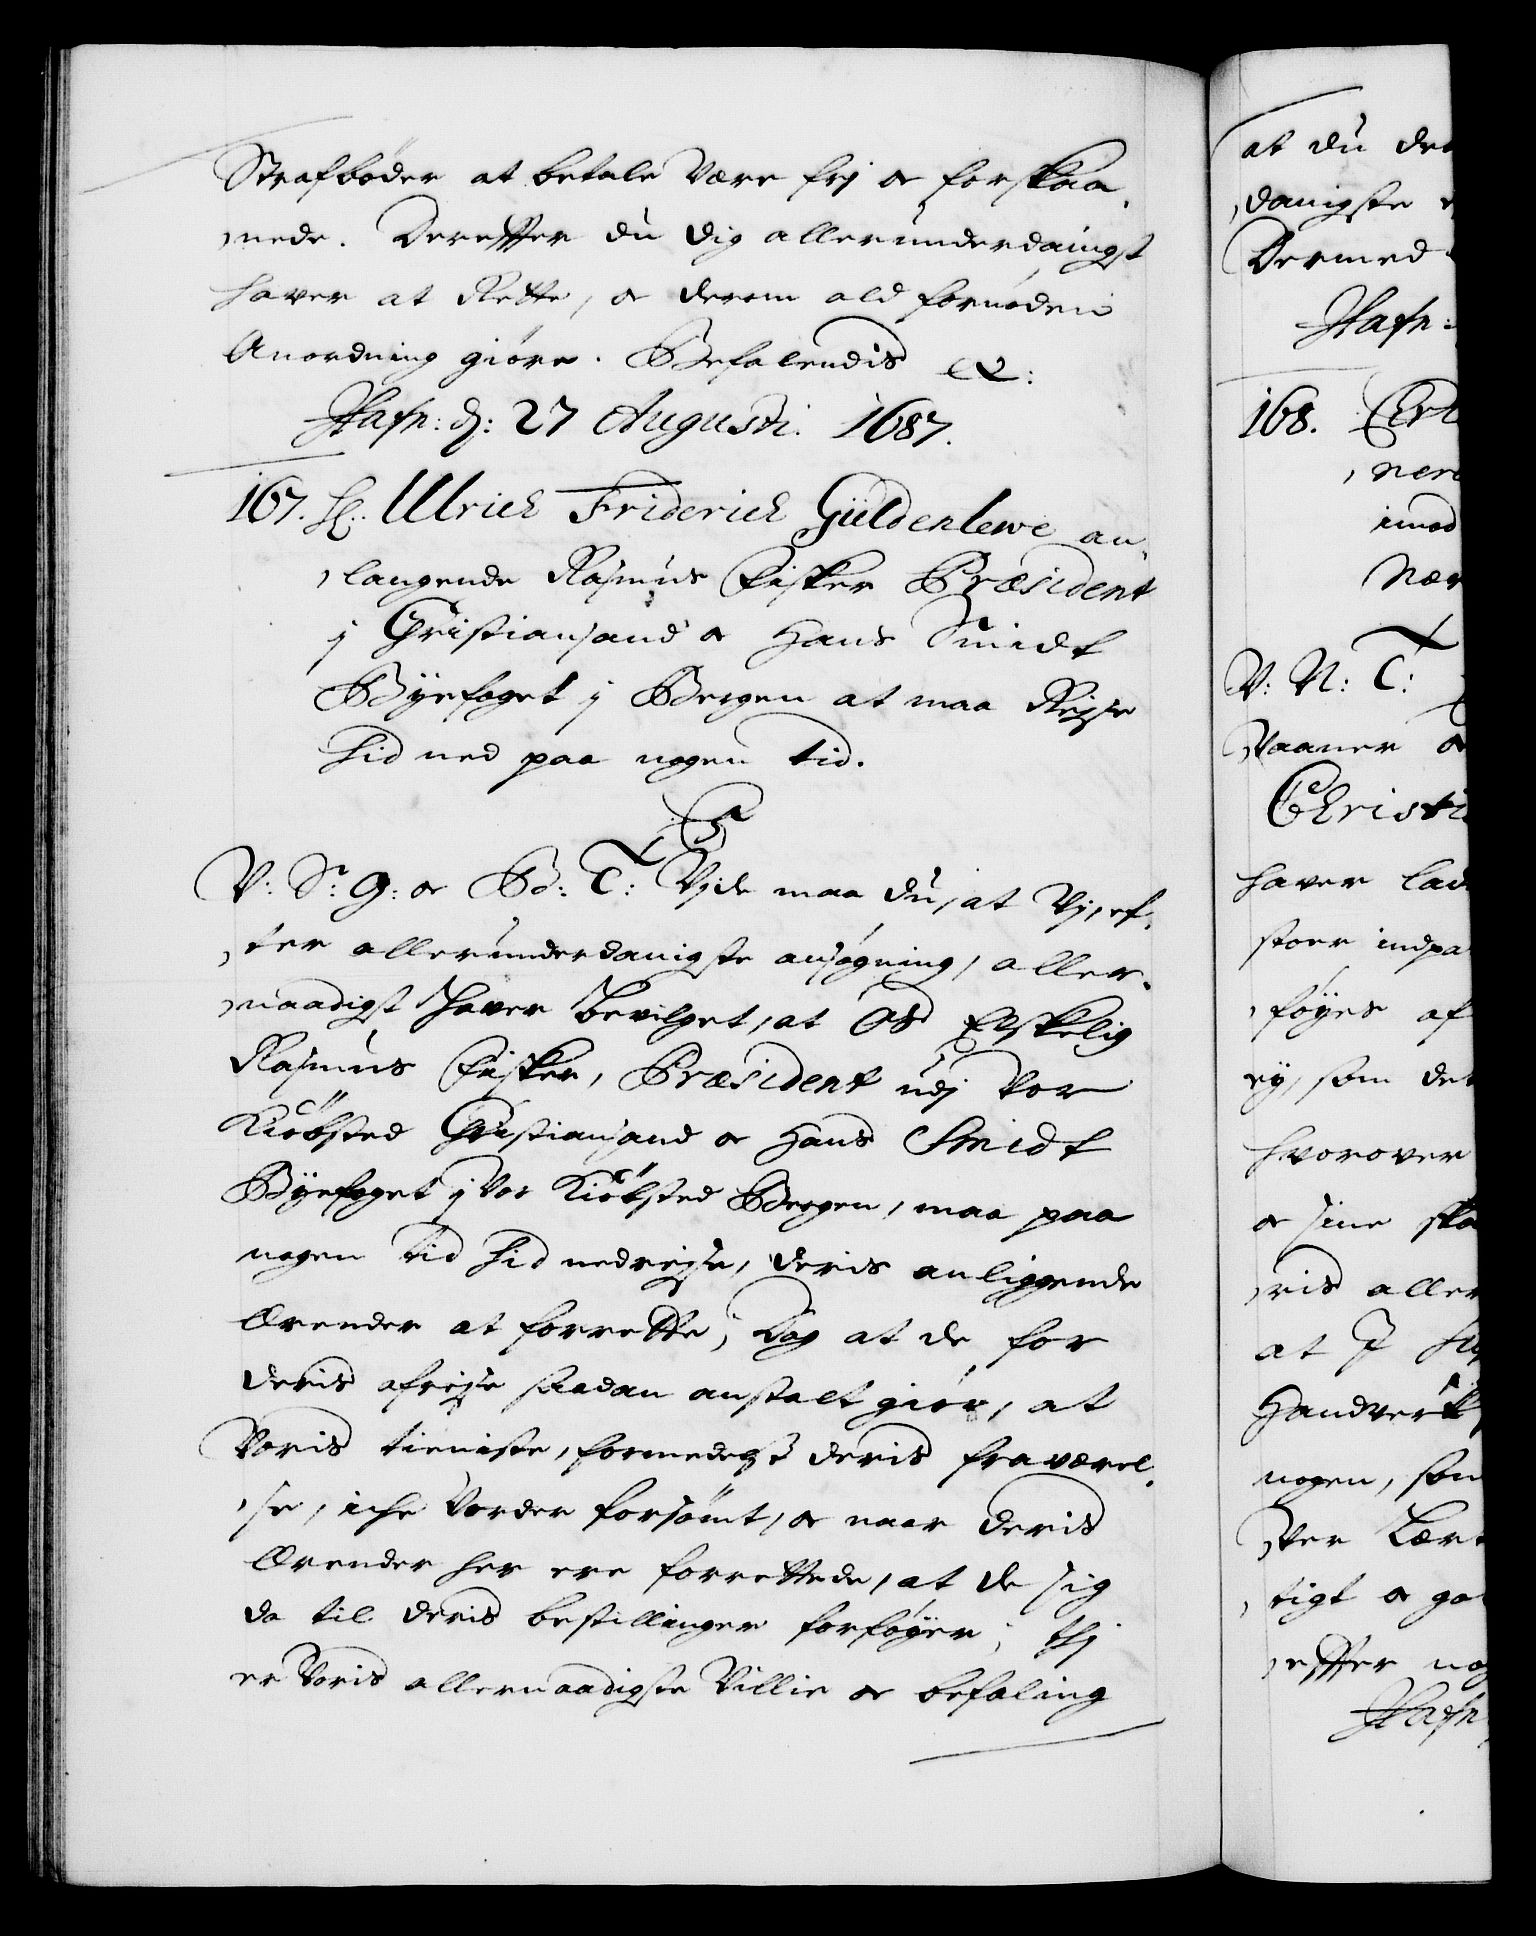 Strafbøder at betale være frj oc forskaa,
,nede. Dereffter du dig allerunderdanigst
hafver at Rette, oc derom ald fornøden
Anordning giøre. Befalendis etc:
Hafn: d: 27 Augusti. 1687.
167. H: Ulrich Friderich Güldenlewe an,
,langende Rasmus Fisker Præsident
j Christiansand oc Hans Smidt
Byefoget j Bergen at maa Rejse
hid ned paa nogen tid.
C5
V: Sr: G: oc B: T: Vide maa du, at Vj, ef,
,ter allerunderdanigste ansøgning, aller,
,naadigst hafver bevilget, at Os Elskelig
Rasmus Fisker, Præsident udj Vor
Kiøbsted Christiansand oc Hans Smidt
Byefoget j Vor Kiøbsted Bergen, maa paa
nogen tid hid nedrejse, deris anliggende
Ærender at forrette; Dog at de for
deris afrejse saadan anstalt giør, at
Voris tieniste, formedelst deris fraværel,
,se, iche vorder forsømt, oc naar deris
Ærender her ere forrettede, at de sig
da til deris bestillinger forføyer; thj
er Voris allernaadigste Villie oc befaling
at du der
,danigste
Dermed
Hafn:
168.
,ner
imod
Nær
V: N: T:
,staaner oc
Christi
hafver lad
stoer indpa
,føyes af
ey, som det
hvorover
oc sine ska
,ris aller
at J
Handverk
nogen, som
,ster Lær
,tigt oc go
,effter nog
Hafn